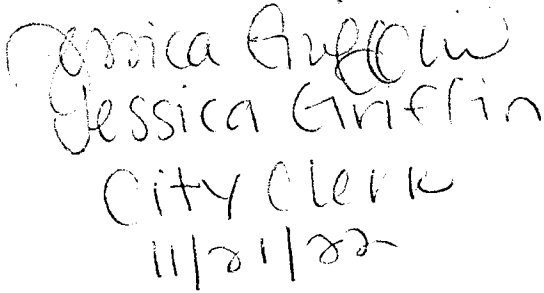 Jessica Griffin
Jessica Griffin
City Clerk
11/21/22